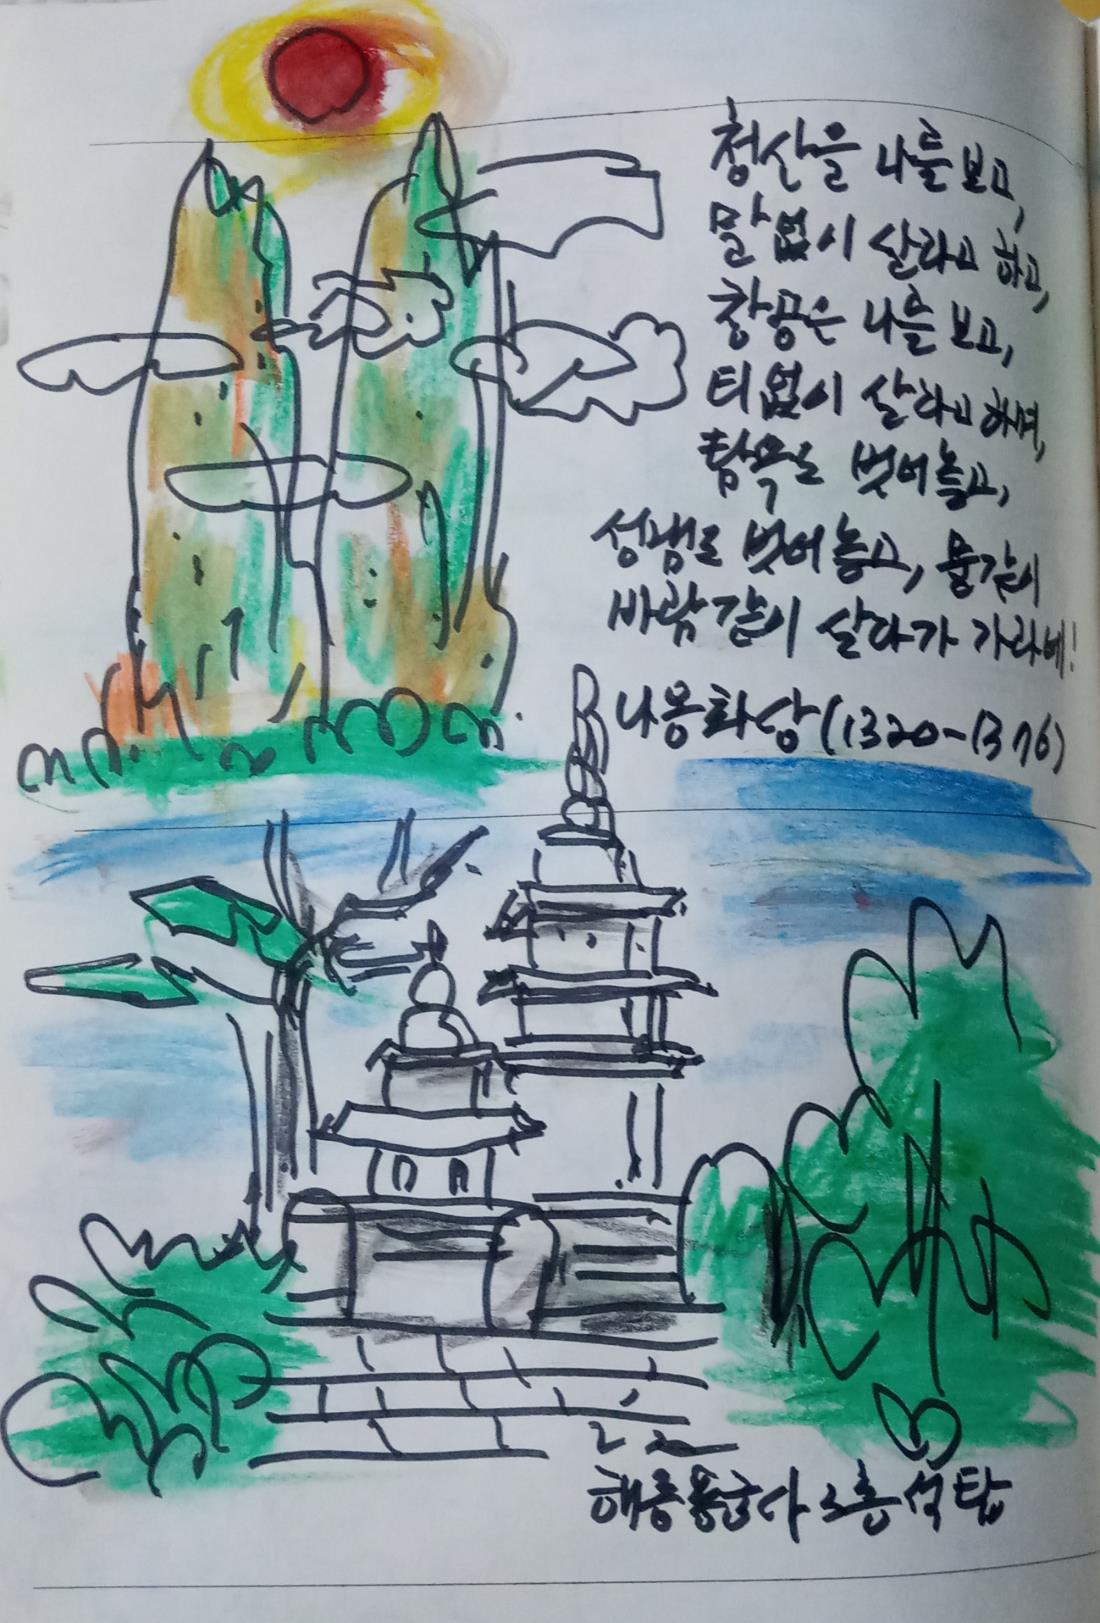 청산을 나를 보고,
말없이 살라고 하고,
창공은 나를 보고,
티없이 살라고 하며,
탐욕도 벗어놓고,
성냄도 벗어놓고, 물같이
바람같이 살다가 가라네!
나옹화상(1320-1376)
해동용궁사 3층석탑